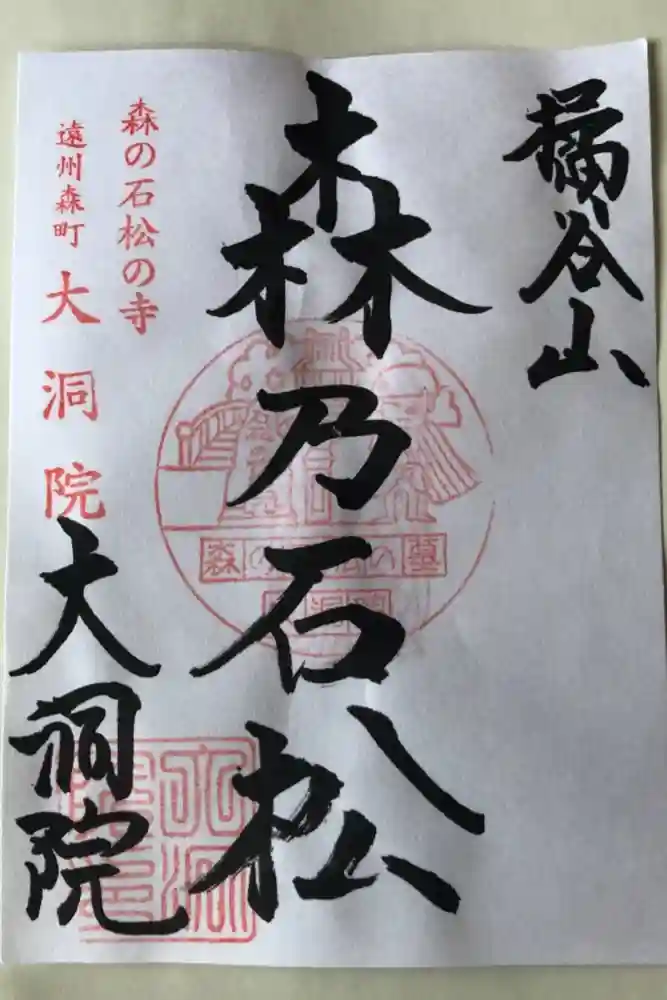 橘谷山
森乃石松
森の石松の墓
大洞院
森の石松の寺
遠州森町 大洞院
大洞院